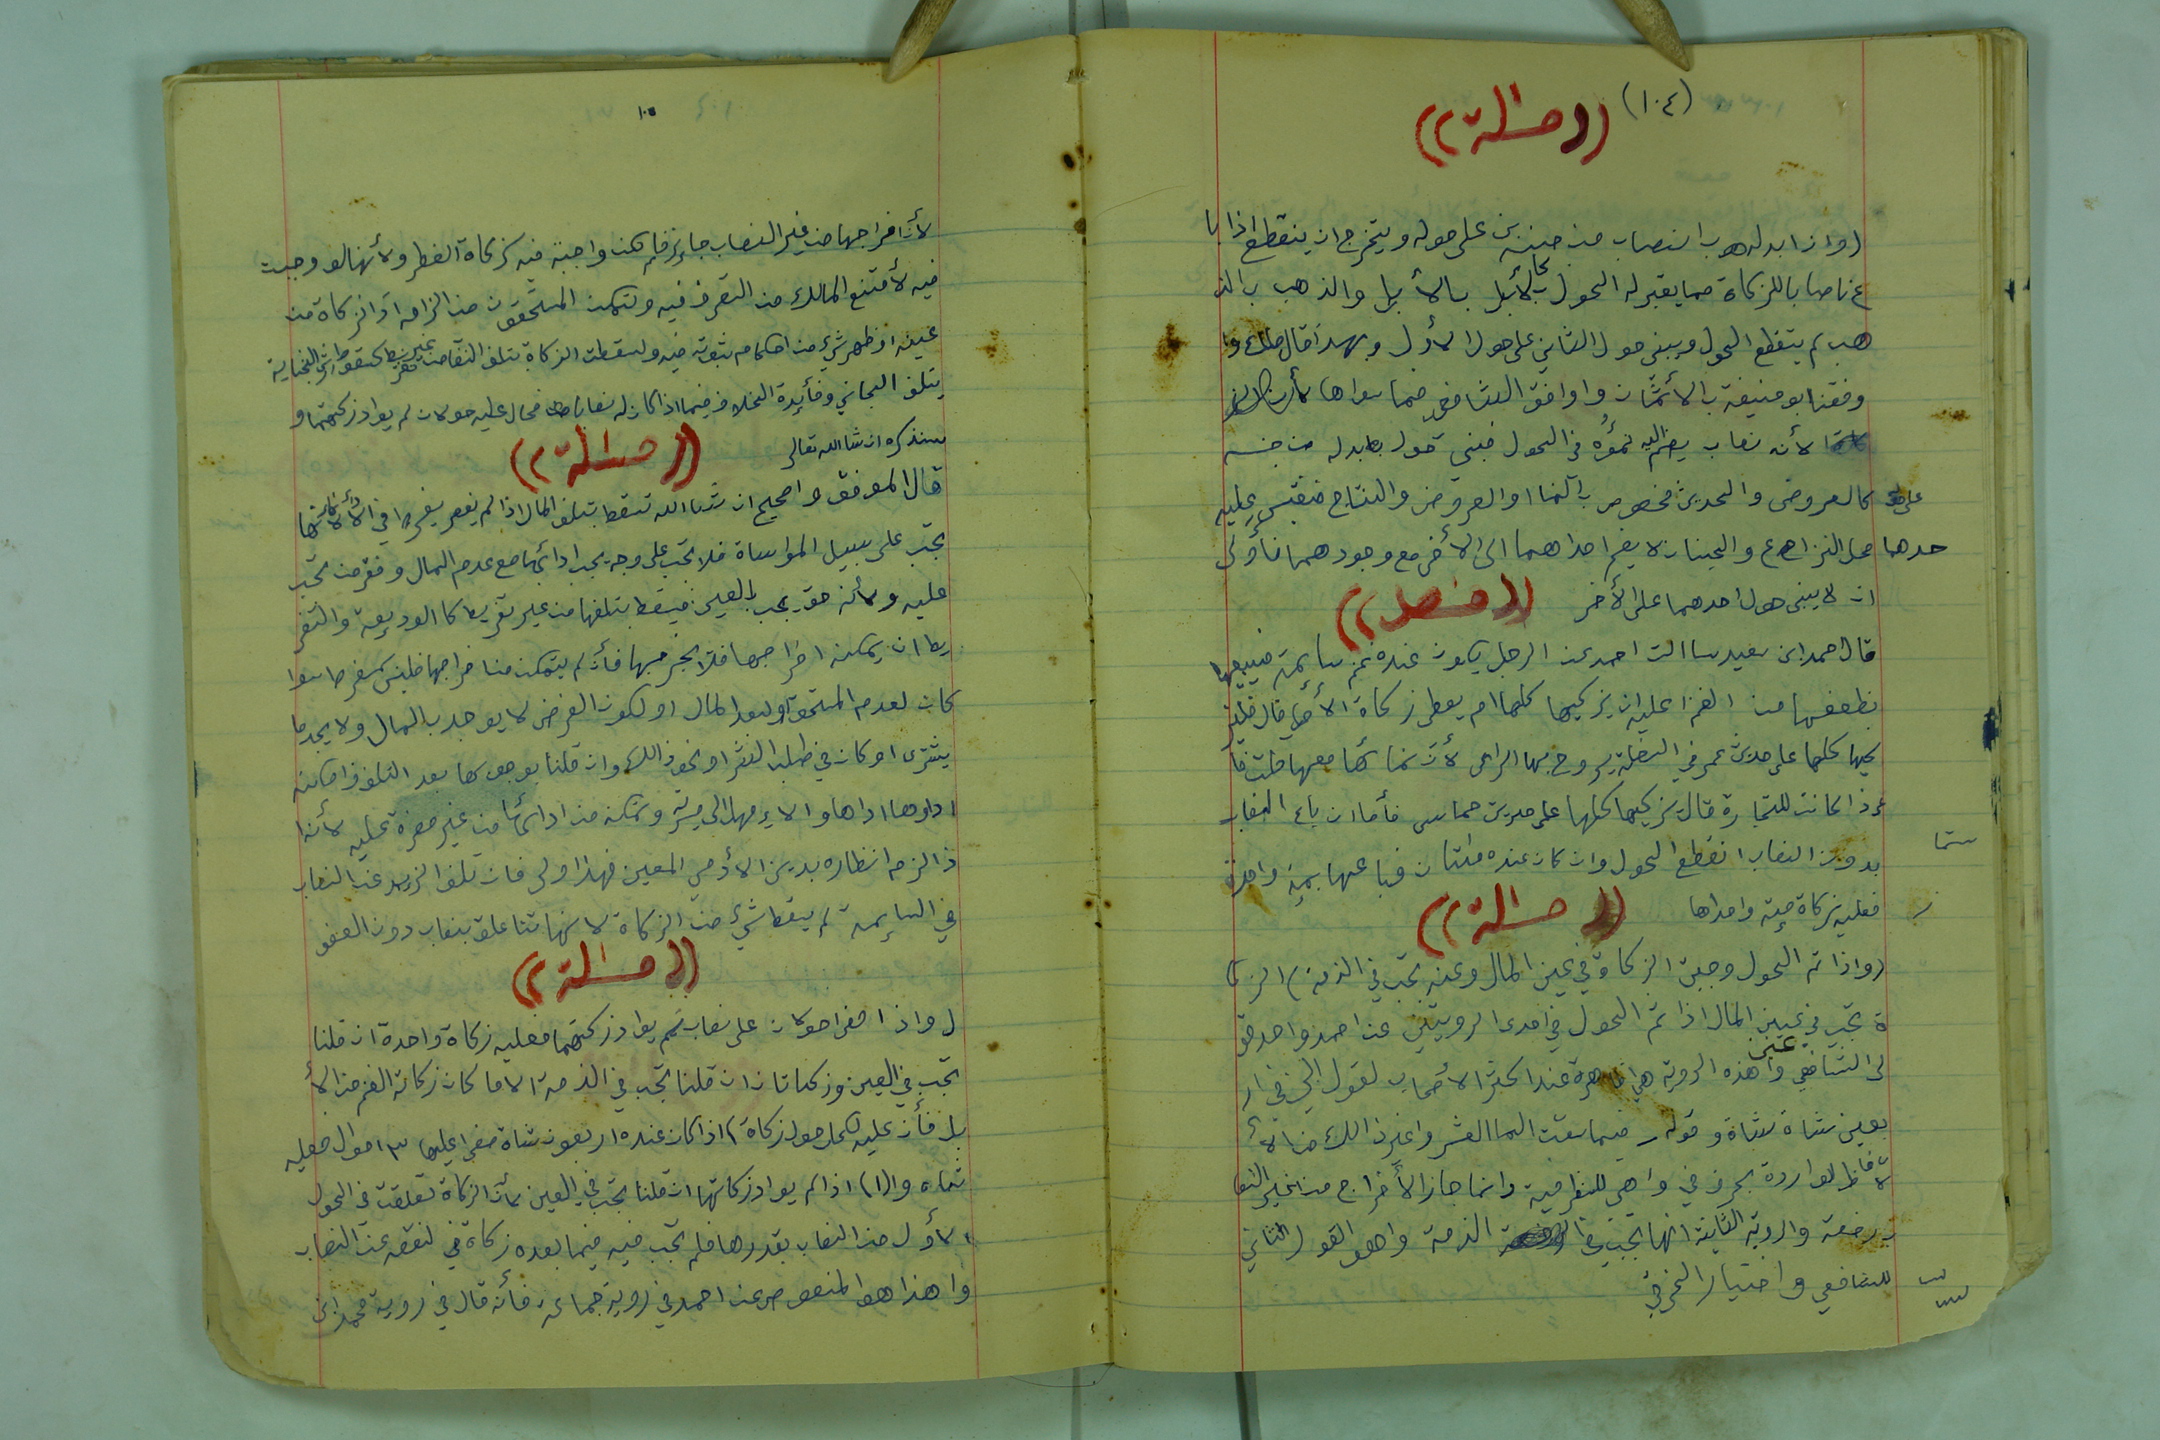 (١٠٤)
((مسألة))
(وان ابدله هو ب النصاب من جنسه بن على حوله ويتخرج ان ينقطع اذا با
ع ناصابا للزكاة مما يعتبر له الحول كالأبل بالأبل والذهب ب الذ
هب لم ينقطع الحول ويبني حول الثاني على حول الأول وبهذا قال مالك وا
وفقنا بو حنيفة ب الأثمان واوافق الشافعي فيما سواها
لأنه نصاب يضم اليه نموّه في الحول فبنى حول بدله من جنسه
كالعروض والحديث مخصوص بالنما او العروض والنتاج فنقيس عليه
محل النزاع والجنسان لا يضم احداهما الى الأخر مع وجودهما فأولى
حدهما
ان لا يبنى حول احدهما على الأخر
((فصل))
قال احمد ابن سعيد ساالت احمد عن الرجل يكون عنده غنم سايمة فيبيعها
بظعفها من الغنم اعليه ان يزكيها كلها ام يعطي زكاة الأصل قال بل يز
كيها كلها على حديث عمر في السخلة يروح بها الراعي لأن نمائها معها قلت فأ
ءذا كانت للتجارة قال يزكيها كلها على حديث حماس فأما ان باع النصاب
بدون النصاب انقطع الحول وان كان عنده مئتان فباعها بمئة واحدة
فعليه زكاة مئة واحداها
((مسألة))
(واذا تم الحول وجبت الزكاة في عين المال وعنه تجب في الذمة) الزكا
ة تجب في عين المال اذا تم الحول في احدى الرويتين عن احمد واحد قو
لى الشافعي وا هذه الروية هي الظاهرة عند اكثر الأصحاب لقول النبي في ار
بعين شاة شاة وقوله فيما سقت السما العشر واغير ذالك من الأ
لافاظ الواردة بحرف في واهي للظرافية وانما جاز الأخراج من اغير النصا
ب رخصة والروية الثانية انها تجب في الذمة واهو القول الثاني
للشافعي واختيار الخرقي
١٠٥
لأن اخراجها من غير النصاب جايز فلم تكن واجبة فيه كزكاة الفطر ولأنها لو وجبت
فيه لأمتنع المالك من التصرف فيه ولتمكن المستحقون من الزامه اذا الزكاة من
عينه او ظهر شيء من احكام ثبوته فيه ولسقطت الزكاة بتلف النصاب من غير تفريط كسقوط ارش الجناية
بتلف الجاني وفأيدة الخلاف فيما اذا كان له نصاب فحال عليه حولان لم يوادز كتهما و
سنذكره ان شا الله تعالى
((مسألة))
قال الموفق وا صحيح ان شا الله تسقط بتلف المال اذا لم يفرط في الأدأ لأنها
تجب على سبيل المواساة فلا تجب على وجه يجب ادائها مع عدم المال وفقر من تجب
عليه ولأنه حق يجب بالعين فيسقط بتلفها من غير تفريط كا الوديعة والتفر
يط ان يمكنه اخراجها فلا يخرجها فأن لم يتمكن من اخراجها فليس بمفرط سوا
كان لعدم المستحق او لبعد المال او لكون الفرض لا يوجد بالمال ولا يجد ما
يشترى او كان في طلب الشرا او نحو ذالك وان قلنا بوجوبها بعد التلف فامكنه
اداوها اداها والا ءمهل الى ميسرة وتمكنه من ادائها من غير مضرة عليه لأنه ا
ذا لزم انتظاره بدين الأدمي المعين فهذا اولى فان تلف الزيد عن النصاب
في السايمة لم يسقط شيء من الزكاة لانها تتاعلق بنصاب دون العفو
((مسألة))
(واذا امضا حولان على نصاب لم يوادز كتهما فعليه زكاة واحدة ان قلنا
تجب في العين وزكاتان ان قلنا تجب في الذمة الا ما كان زكاته الغنم من الأ
بل فأن عليه لكل حول زكاة) اذا كان عنده اربعون شاة مضى عليها ٣ احوال فعليه
شاه وا(١) اذا لم يوادز كاتها ان قلنا تجب في العين لأن الزكاة تعلقت في الحول
الأول من النصاب بقدرها فلم تجب فيه فيما بعده زكاة في لنقصه عن النصاب
وا هذا هو المنصوص عن احمد في روية جماعة فأنه قال في روية محمد ابن